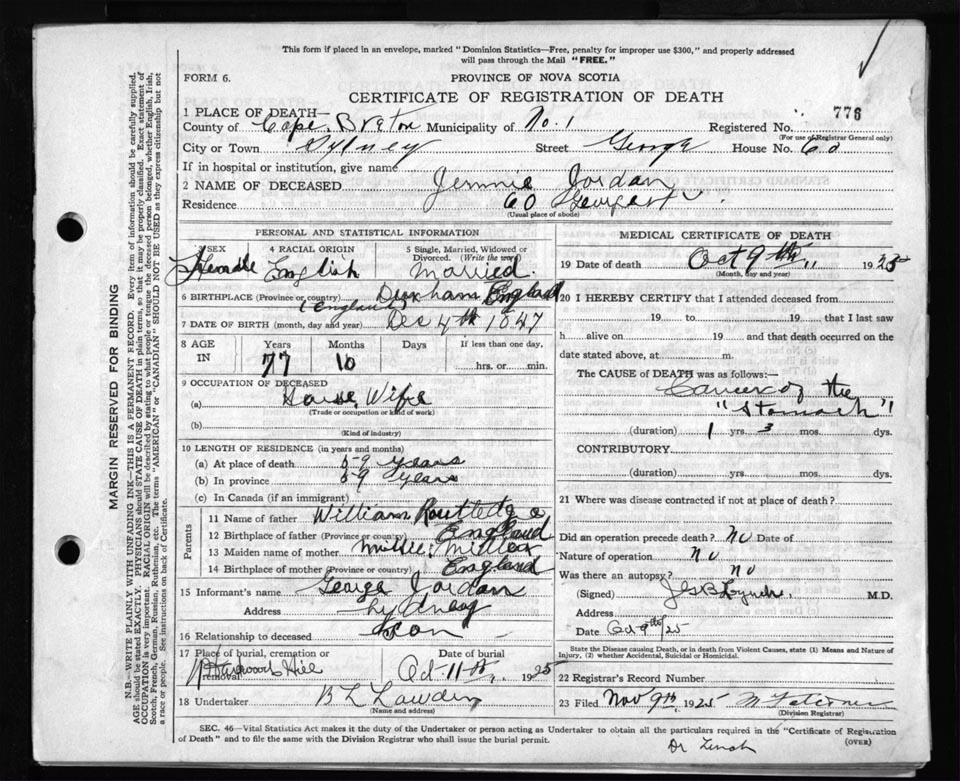 This form if placed in an envelope, marked "Dominion Statistics—Free, penalty for improper use $300," and properly addressed
will pass through the Mail "FREE."
FORM 6.
PROVINCE OF NOVA SCOTIA
CERTIFICATE OF REGISTRATION OF DEATH
1 PLACE OF DEATH—
County of Cape Breton Municipality of No. 1 Registered No. 776
(For use of Registrar General only)
City or Town Sydney Street George House No. 60
If in hospital or institution, give name
2 NAME OF DECEASED Jennie Jordan
Residence 60 George St
(Usual place of abode)
PERSONAL AND STATISTICAL INFORMATION
3 SEX 4 RACIAL ORIGIN 5 Single, Married, Widowed or Divorced. (Write the word)
Female English Married.
6 BIRTHPLACE (Province or country) Durham England
(England)
7 DATE OF BIRTH (month, day and year) Dec 4th 1847
8 AGE IN Years Months Days If less than one day,
77 10 hrs. or min.
9 OCCUPATION OF DECEASED
(a) House Wife
(Trade or occupation or kind of work)
(b)
(Kind of industry)
10 LENGTH OF RESIDENCE (in years and months)
(a) At place of death 59 years
(b) In province 59 years
(c) In Canada (if an immigrant)
Parents
11 Name of father William
12 Birthplace of father (Province or country) England
13 Maiden name of mother Miller
14 Birthplace of mother (Province or country) England
15 Informant's name George Jordan
Address Sydney
16 Relationship to deceased Son
17 Place of burial, cremation or removal Date of burial
Hardwood Hill Oct 11th, 1925
18 Undertaker B L
(Name and address)
MEDICAL CERTIFICATE OF DEATH
19 Date of death Oct 9th 1925
(Month, day and year)
20 I HEREBY CERTIFY that I attended deceased from
19 to 19 that I last saw
h alive on 19 and that death occurred on the
date stated above, at m.
The CAUSE of DEATH was as follows:—
Cancer of the
"Stomach"!
(duration) 1 yrs. 3 mos. dys.
CONTRIBUTORY
(duration) yrs. mos. dys.
21 Where was disease contracted if not at place of death?
Did an operation precede death? No Date of
Nature of operation No
Was there an autopsy? No
(Signed) Lynch. M.D.
Address
Date Oct 9th/25
State the Disease causing Death, or in death from Violent Causes, state (1) Means and Nature of
Injury, (2) whether Accidental, Suicidal or Homicidal.
22 Registrar's Record Number
23 Filed Nov 9th, 1925
(Division Registrar)
SEC. 46—Vital Statistics Act makes it the duty of the Undertaker or person acting as Undertaker to obtain all the particulars required in the "Certificate of Registration
of Death" and to file the same with the Division Registrar who shall issue the burial permit.
(OVER)
Dr Lynch
MARGIN RESERVED FOR BINDING
N.B.—WRITE PLAINLY WITH UNFADING INK—THIS IS A PERMANENT RECORD. Every item of information should be carefully supplied.
AGE should be stated EXACTLY. PHYSICIANS should STATE CAUSE OF DEATH in plain terms, so that it may be properly classified. Exact statement of
OCCUPATION is very important. RACIAL ORIGIN will be described by stating to what people or tongue the deceased person belonged, whether English, Irish,
Scotch, French, German, Russian, Ruthenian, etc. The terms "AMERICAN" or "CANADIAN" SHOULD NOT BE USED as they express citizenship but not
a race or people. See instructions on back of Certificate.